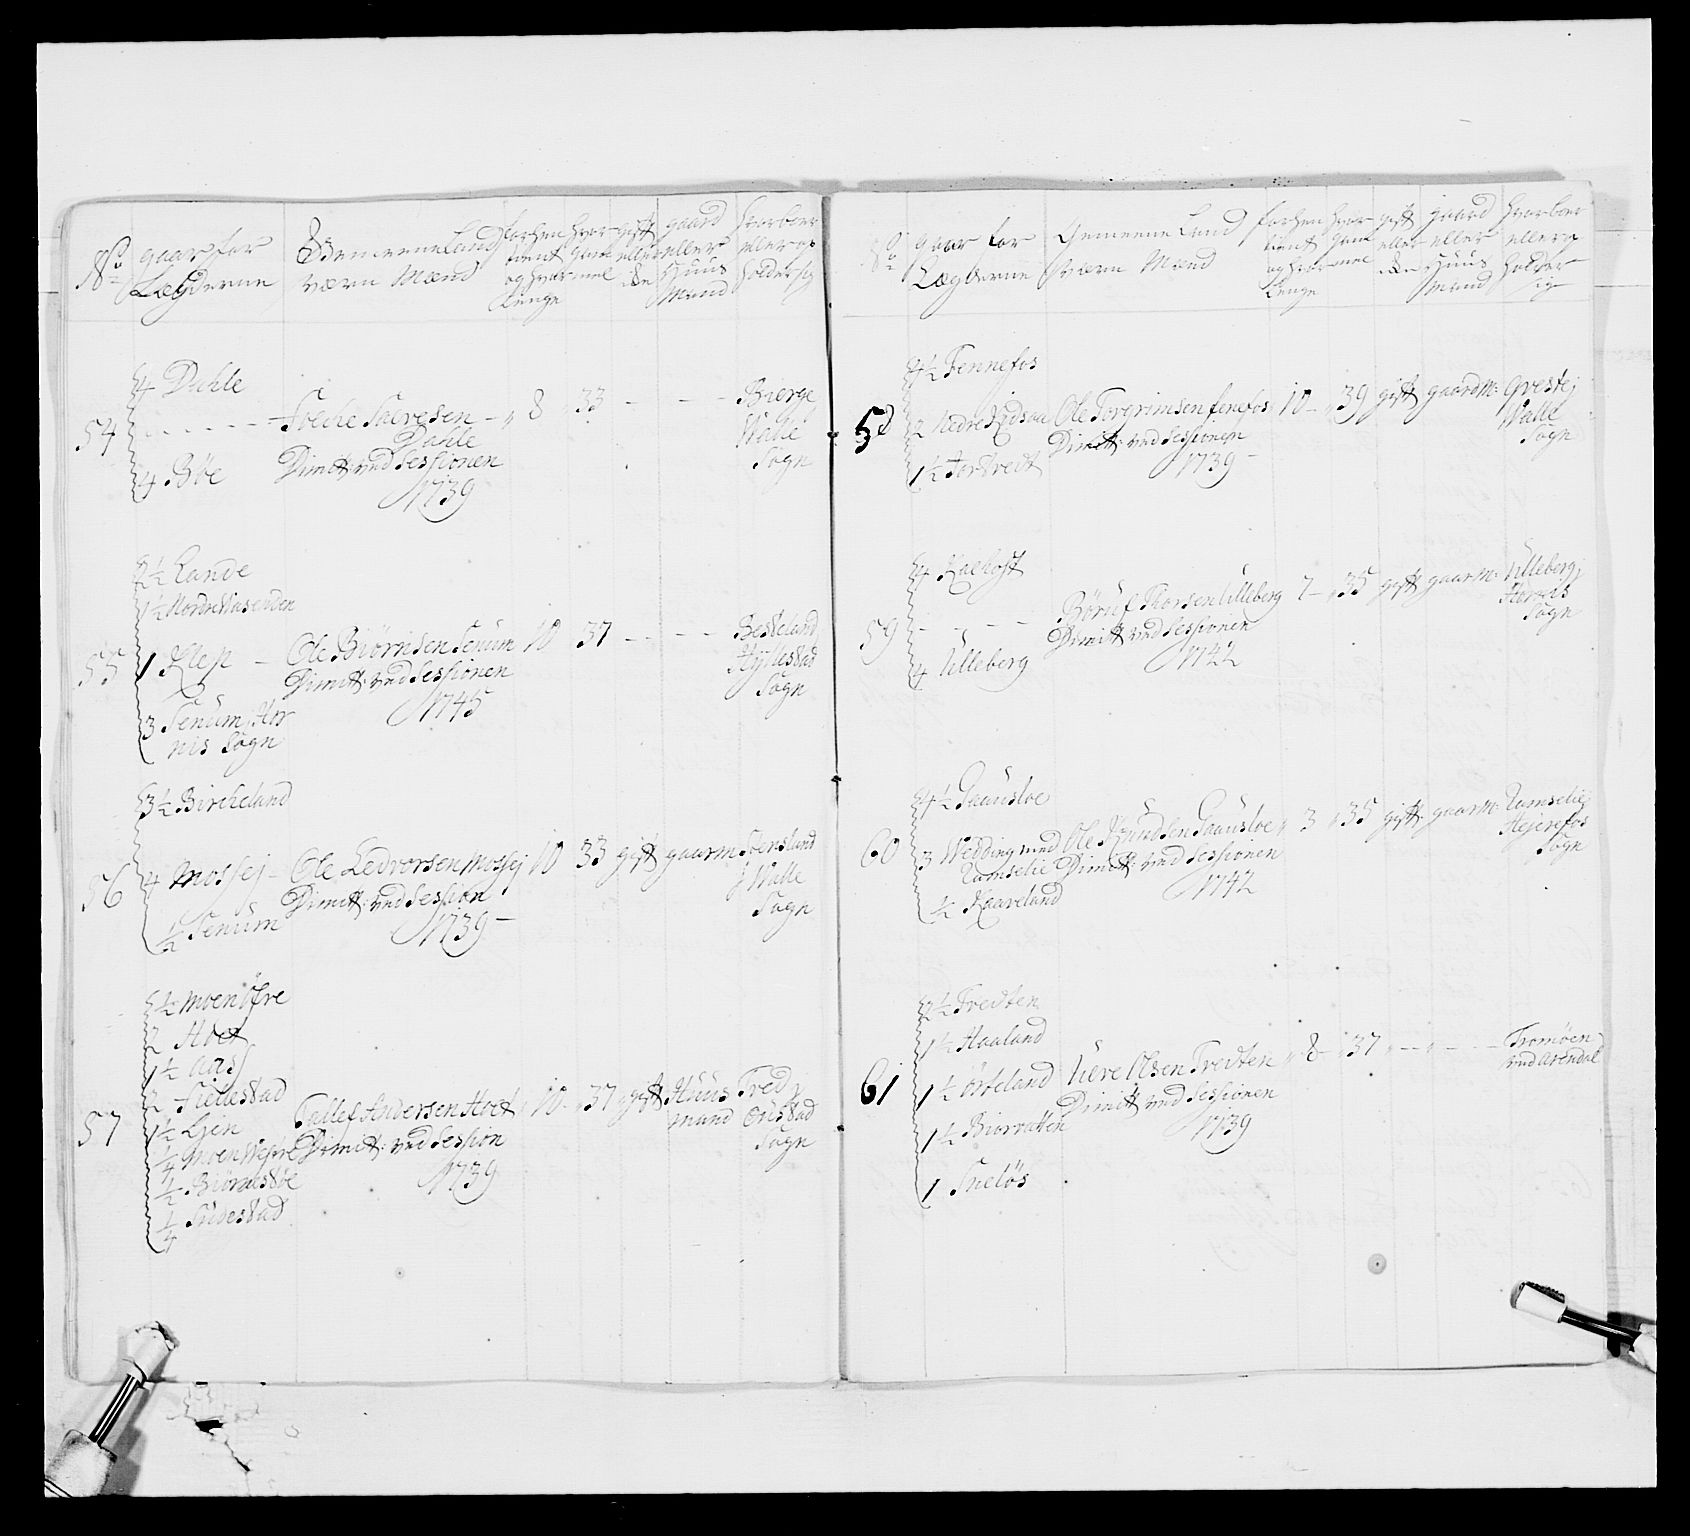 No
gaar for
Lægderne
Gemeene Land
værn Mænd
forhen
tient
og hvor
lenge
hvor
gam
mel
gift
eller
ei
gaard
eller
Huus
Mand
hvor boer
eller op
holder sig
54
4 Dahle
4 Bøe
Folche Salvesen
Dahle
Dimitt: ved Sessionen
1739
8
33
Bierge
Walle
Sogn
55
2½ Lande
1½ Nordre Viisenden
1 Klep
3 Senum, Hor
nis Sogn
Ole Biørnsen Senum
Dimitt: ved Sessionen
1745
10
37
Besteland
Hyllestad
Sogn
56
3½ Bircheland
4 Mossej
½ Senum
Ole Ledvorsen Mossej
Dimitt: ved Session
1739
10
33
gift
gaarm
Sørensland
j Walle
Sogn
57
½ Moen öfre
2 Hoet
1½ Aass
2 Fiellestad
1½ Lien
¼ Moen Nefre
½ Biørnesbøe
¼ Sudestad
Tallef Andersen Hoet
Dimitt: ved Session
1739
10
37
gift
Huus
mand
Tred j
Oustad
Sogn
No
gaar for
Lægderne
Gemeene Land
værn Mænd
forhen
tient
og hvor
lenge
hvor
gam
mel
gift
eller
ei
gaard
eller
Huus
Mand
hvor boer
eller op
holder
sig
58
4½ Fennefos
2 Nedre Rødsaa
1½ Fortredt
Ole Torgrimsen fenefos
Dimitt: ved Sessionen
1739
10
39
gift
gaardm:
Qvestej
Walle
Sogn
59
4 Kaahost
4 Ulleberg
Børuf Thorsen Ulleberg
Dimitt ved Sessionen
1742
7
35
gift
gaarm:
Ulleberg j
Hornis
Sogn
60
4½ Gaausloe
3 Wedding med
Ramselie
½ Kaareland
Ole Knudsen Gaausloe
Dimitt: ved Sessionen
1742
3
35
gift
gaarm:
Ramselie
Hejerefos
Sogn
61
2½ Tredten
1½ Haaland
1½ Örteland
1½ Biorvatten
1 Sneløs
Uere Olsen Tredten
Dimitt ved Sessionen
1739
8
37
Tromøen
ved Arendal